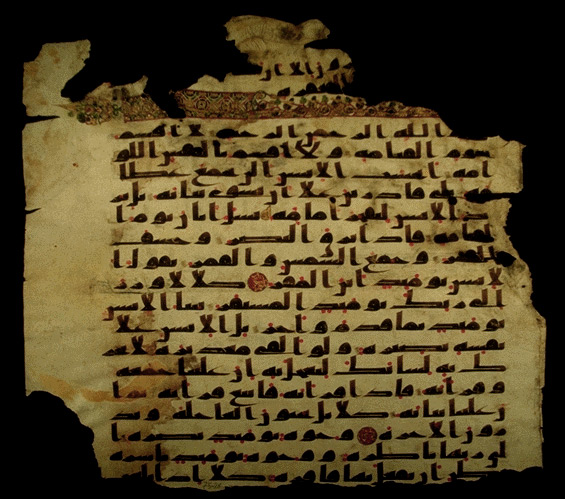 الله الرحمن الرحيم لا اقسم
بيوم القيمه ولا اقسم بالنفس اللو
امه ايحسب الانسن الن نجمع عظا
مه بلى قادرين على ان نسوي بنانه بل ير
يد الانسن ليفجر امامه يسل ايان يوم ا
لقيمه فاذا برق البصر وخسف
القمر وجمع الشمس والقمر يقول ا
لانسن يومئذ اين المفر كلا لا وزر
الى ربك يومئذ المستقر ينبا الانسن
يومئذ بما قدم واخر بل الانسن على
نفسه بصيره ولو القى معذيره لا تحر
ك به لسانك لتعجل به ان علينا جمعه
وقرانه فاذا قرانه فاتبع قرانه ثم ا
ن علينا بيانه كلا بل تحبون العاجله وتذ
رون الاخره وجوه يومئذ ناضره ا
لى ربها ناظره ووجوه يومئذ باسره
تظن ان يفعل بها فاقره كلا اذا